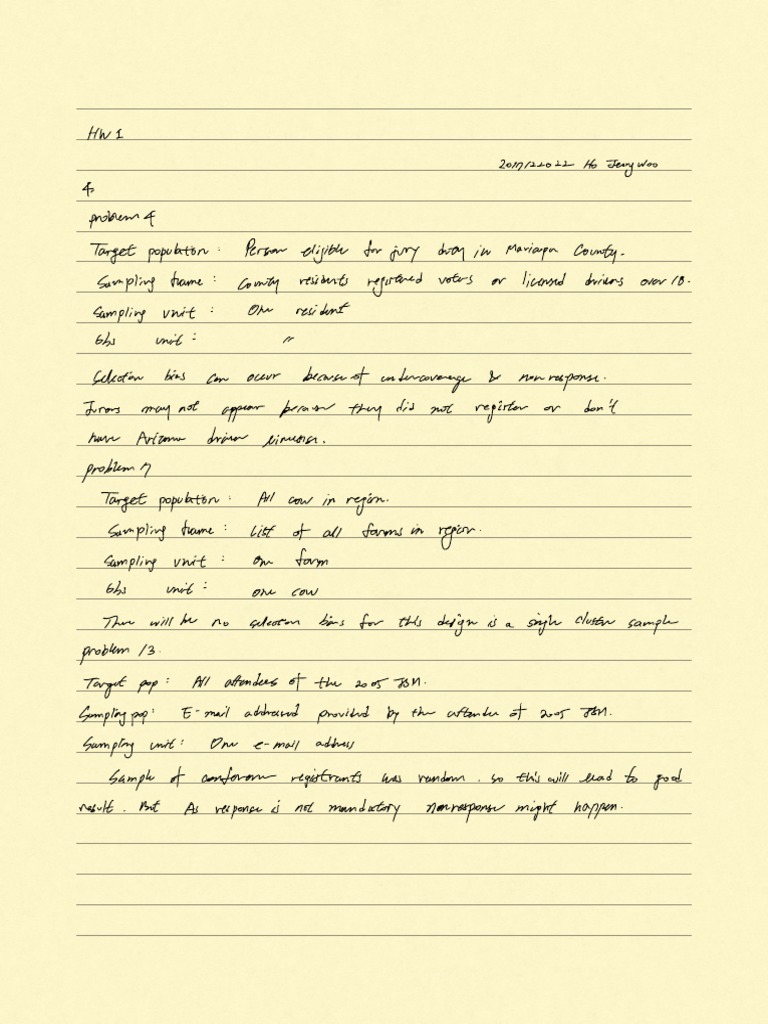 HW 1
Ho Jeong Woo
4.
problem 4
Target population : Person eligible for jury duty in Maricopa County.
Sampling frame : County residents registered voters or licensed drivers over 18.
Sampling unit : One resident
Obs unit : "
Selection bias can occur because of undercoverage & nonresponse.
Jurors may not appear because they did not register or don't
have Arizona driver
problem 7
Target population : All cow in region.
Sampling frame : list of all farms in region.
Sampling unit : one farm
Obs unit : one cow
There will be no selection bias for this design is a single cluster sample
problem 13.
Target pop : All attendees of the 2005 JSM.
Sampling pop : E-mail addressed provided by the attendee of 2005 JSM.
Sampling unit : One e-mail address
Sample of conference registrants was random. so this will lead to good
result. But As response is not mandatory nonresponse might happen.